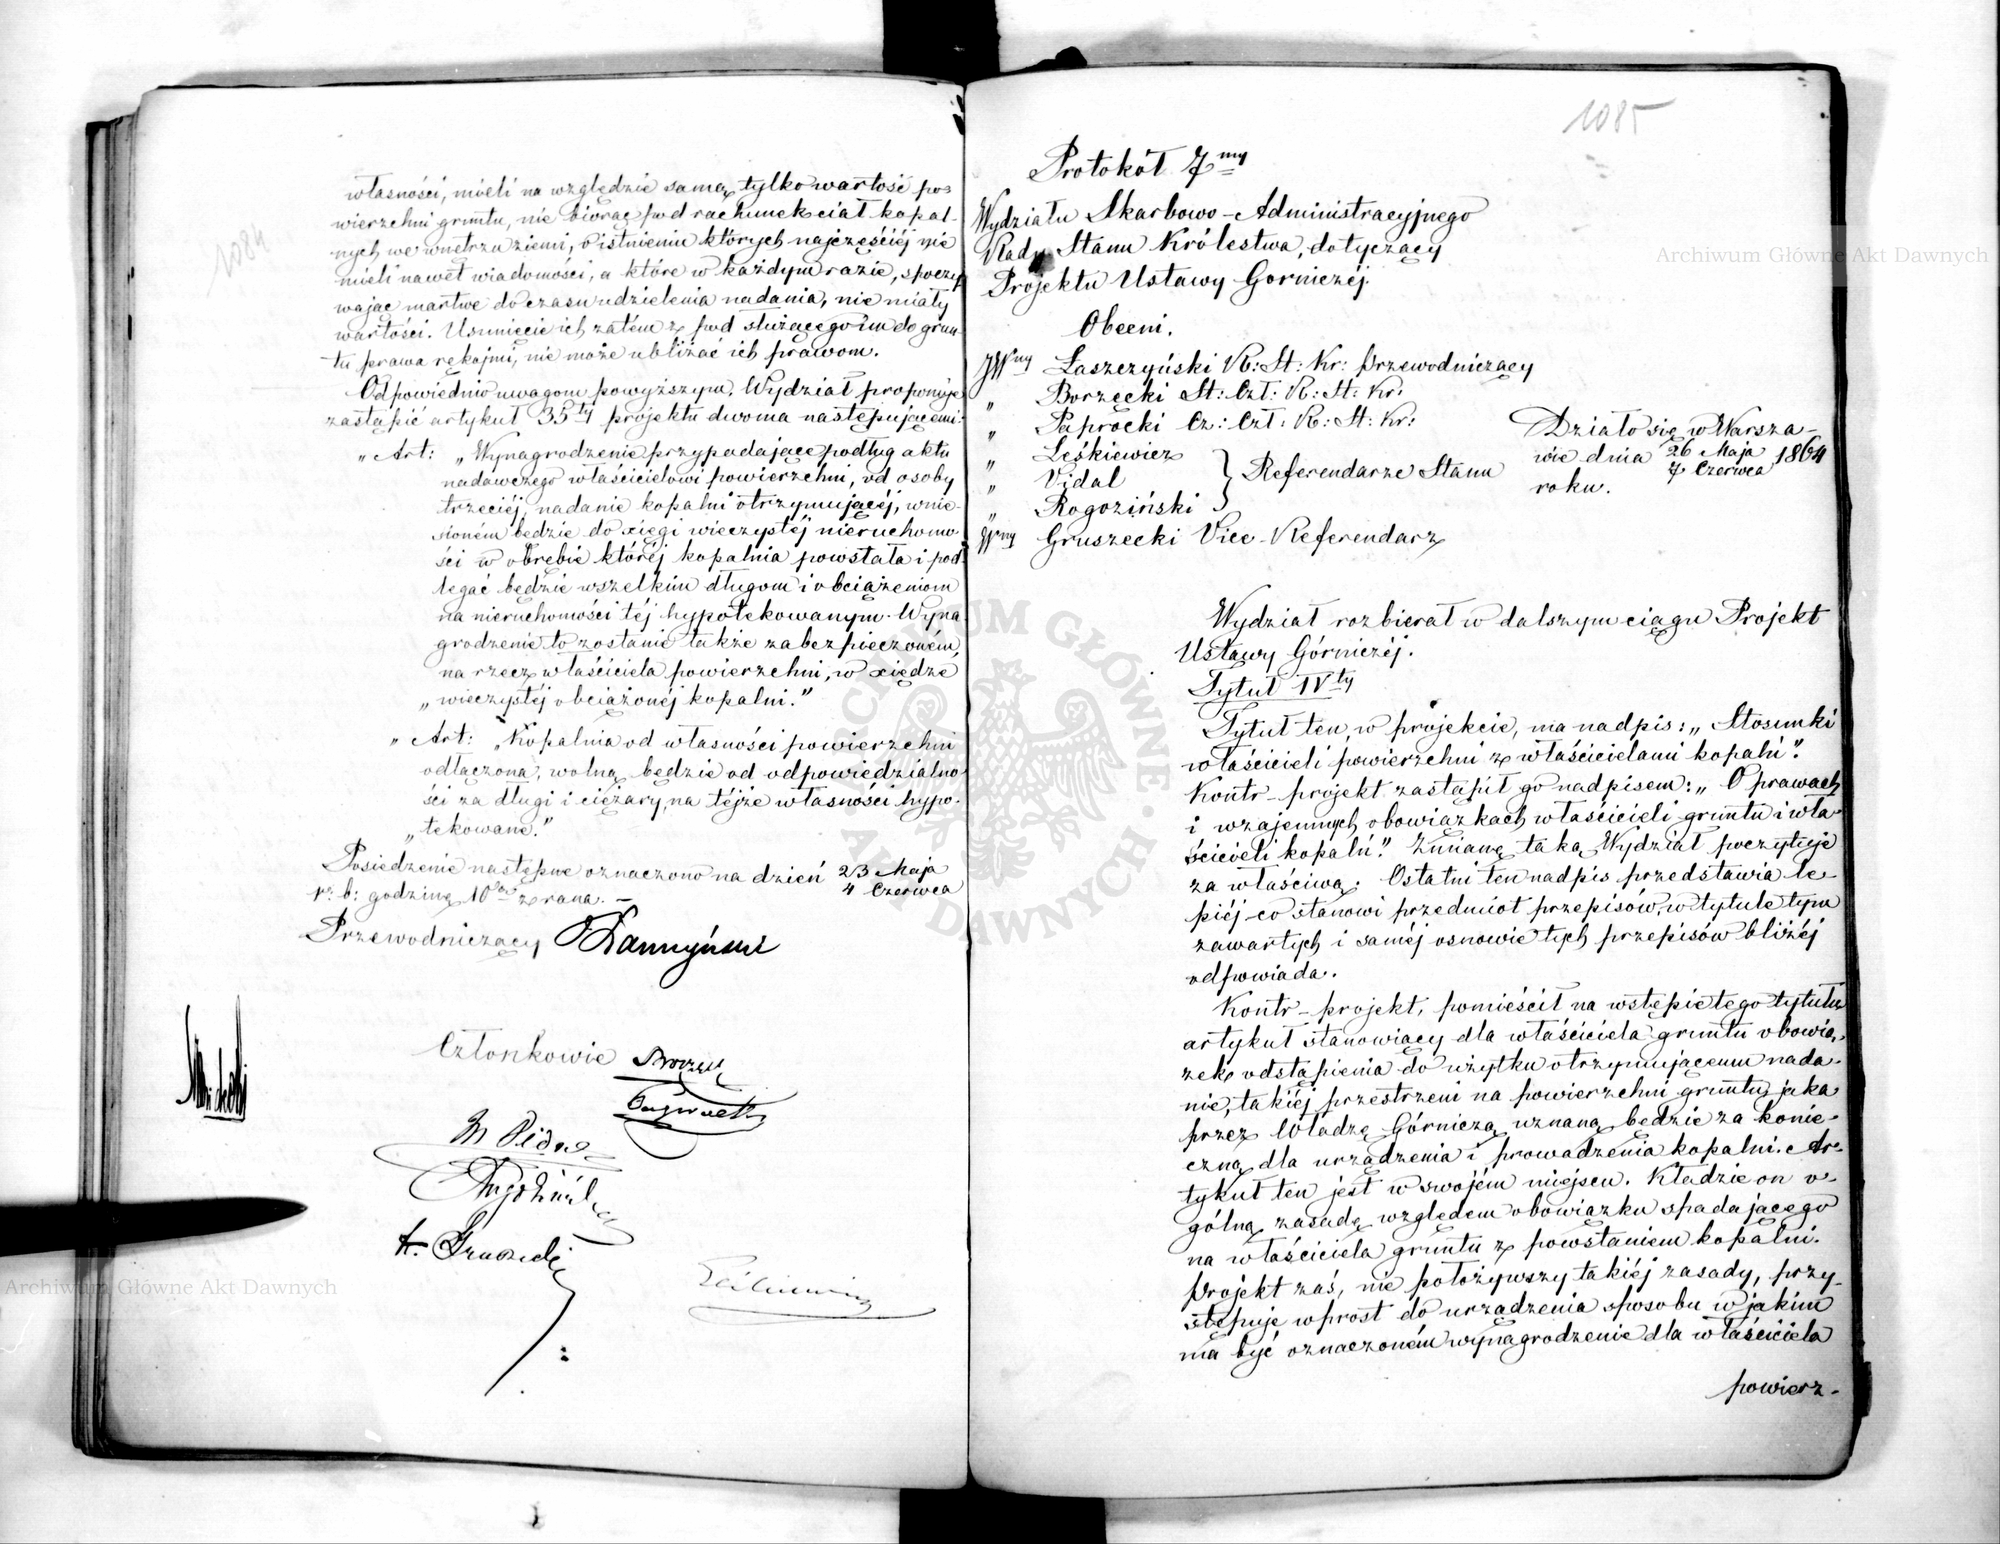 1084
własności, mieli na względzie samą tylko wartość po=
wierzchni gruntu, nie biorąc pod rachunek ciał kopal-
nych we wnętrzu ziemi, o istnieniu których najczęściej nie
mieli nawet wiadomości, a które w każdym razie, spoczy=
wając martwe do czasu udzielenia nadania, nie miały
wartości. Usunięcie ich zatem z pod służącego im do grun-
tu prawa rękojmi, nie może ubliżać ich prawom.
Odpowiednio uwagom powyższym, Wydział proponuje
zastąpić artykuł 35ty projektu dwoma następującemi:
„Art: „Wynagrodzenie przypadające podług aktu
nadawczego właścicielowi powierzchni, od osoby
trzeciéj, nadanie kopalni otrzymującéj, wnie-
sioném będzie do xięgi wieczystéj nieruchomo-
ści w obrębie któréj kopalnia powstała i pod-
legać będzie wszelkim długom i obciążeniom
na nieruchomości téj hypotekowanym. Wyna-
grodzenie to zostanie także zabezpieczoném,
na rzecz właściciela powierzchni, w xiędze
„wieczystéj obciążonéj kopalni."
„Art: „Kopalnia od własności powierzchni
odłączona, wolną będzie od odpowiedzialno-
ści za długi i ciężary, na téjże własności hypo-
„tekowane."
Posiedzenie następne oznaczono na dzień 23 Maja
4 Czerwca
r: b: godzinę 10tą z rana. –
Przewodniczący Łaszczyński
Członkowie Borzęcki
Paprocki
M Vidal
Rogoziński
A. Gruszecki
Leśkiewicz
1085
Protokół 7my
Wydziału Skarbowo-Administracyjnego
Rady Stanu Królestwa, dotyczący
Projektu Ustawy Gorniczéj.
Obecni.
JWny Łaszczyński R: St: Kr: Przewodniczący
„ Borzęcki St: Czł: R: St: Kr:
„ Paprocki Cz: Czł: R: St: Kr:
„ Leśkiewicz
„ Vidal } Referendarze Stanu
„ Rogoziński
Wny Gruszecki Vice-Referendarz
Działo się w Warsza-
wie dnia 26 Maja 1864
7 Czerwca
roku.
Wydział rozbierał w dalszym ciągu Projekt
Ustawy Górniczéj.
Tytuł IVty
Tytuł ten, w projekcie, ma nadpis: „Stosunki
właścicieli powierzchni z właścicielami kopalń".
Kontr-projekt zastąpił go nadpisem: „O prawach
i wzajemnych obowiązkach właścicieli gruntu i wła-
ścicieli kopalń." Zmianę taką Wydział poczytuje
za właściwą. Ostatni ten nadpis przedstawia le-
piéj co stanowi przedmiot przepisów, w tytule tym
zawartych i saméj osnowie tych przepisów bliżéj
odpowiada.
Kontr-projekt, pomieścił na wstępie tego tytułu
artykuł stanowiący dla właściciela gruntu obowią-
zek odstąpienia do użytku otrzymującemu nada-
nie, takiéj przestrzeni na powierzchni gruntu, jaka
przez Władzę Górniczą uznaną będzie za konie-
czną dla urządzenia i prowadzenia kopalni. Ar-
tykuł ten jest w swojém miejscu. Kładzie on o-
gólną zasadę względem obowiązku spadającego
na właściciela gruntu z powstaniem kopalni.
Projekt zaś, nie położywszy takiéj zasady, przy-
stępuje wprost do urządzenia sposobu w jakim
ma być oznaczoném wynagrodzenie dla właściciela
powierz-
Archiwum Główne Akt Dawnych
Archiwum Główne Akt Dawnych
ARCHIWUM GŁÓWNE AKT DAWNYCH